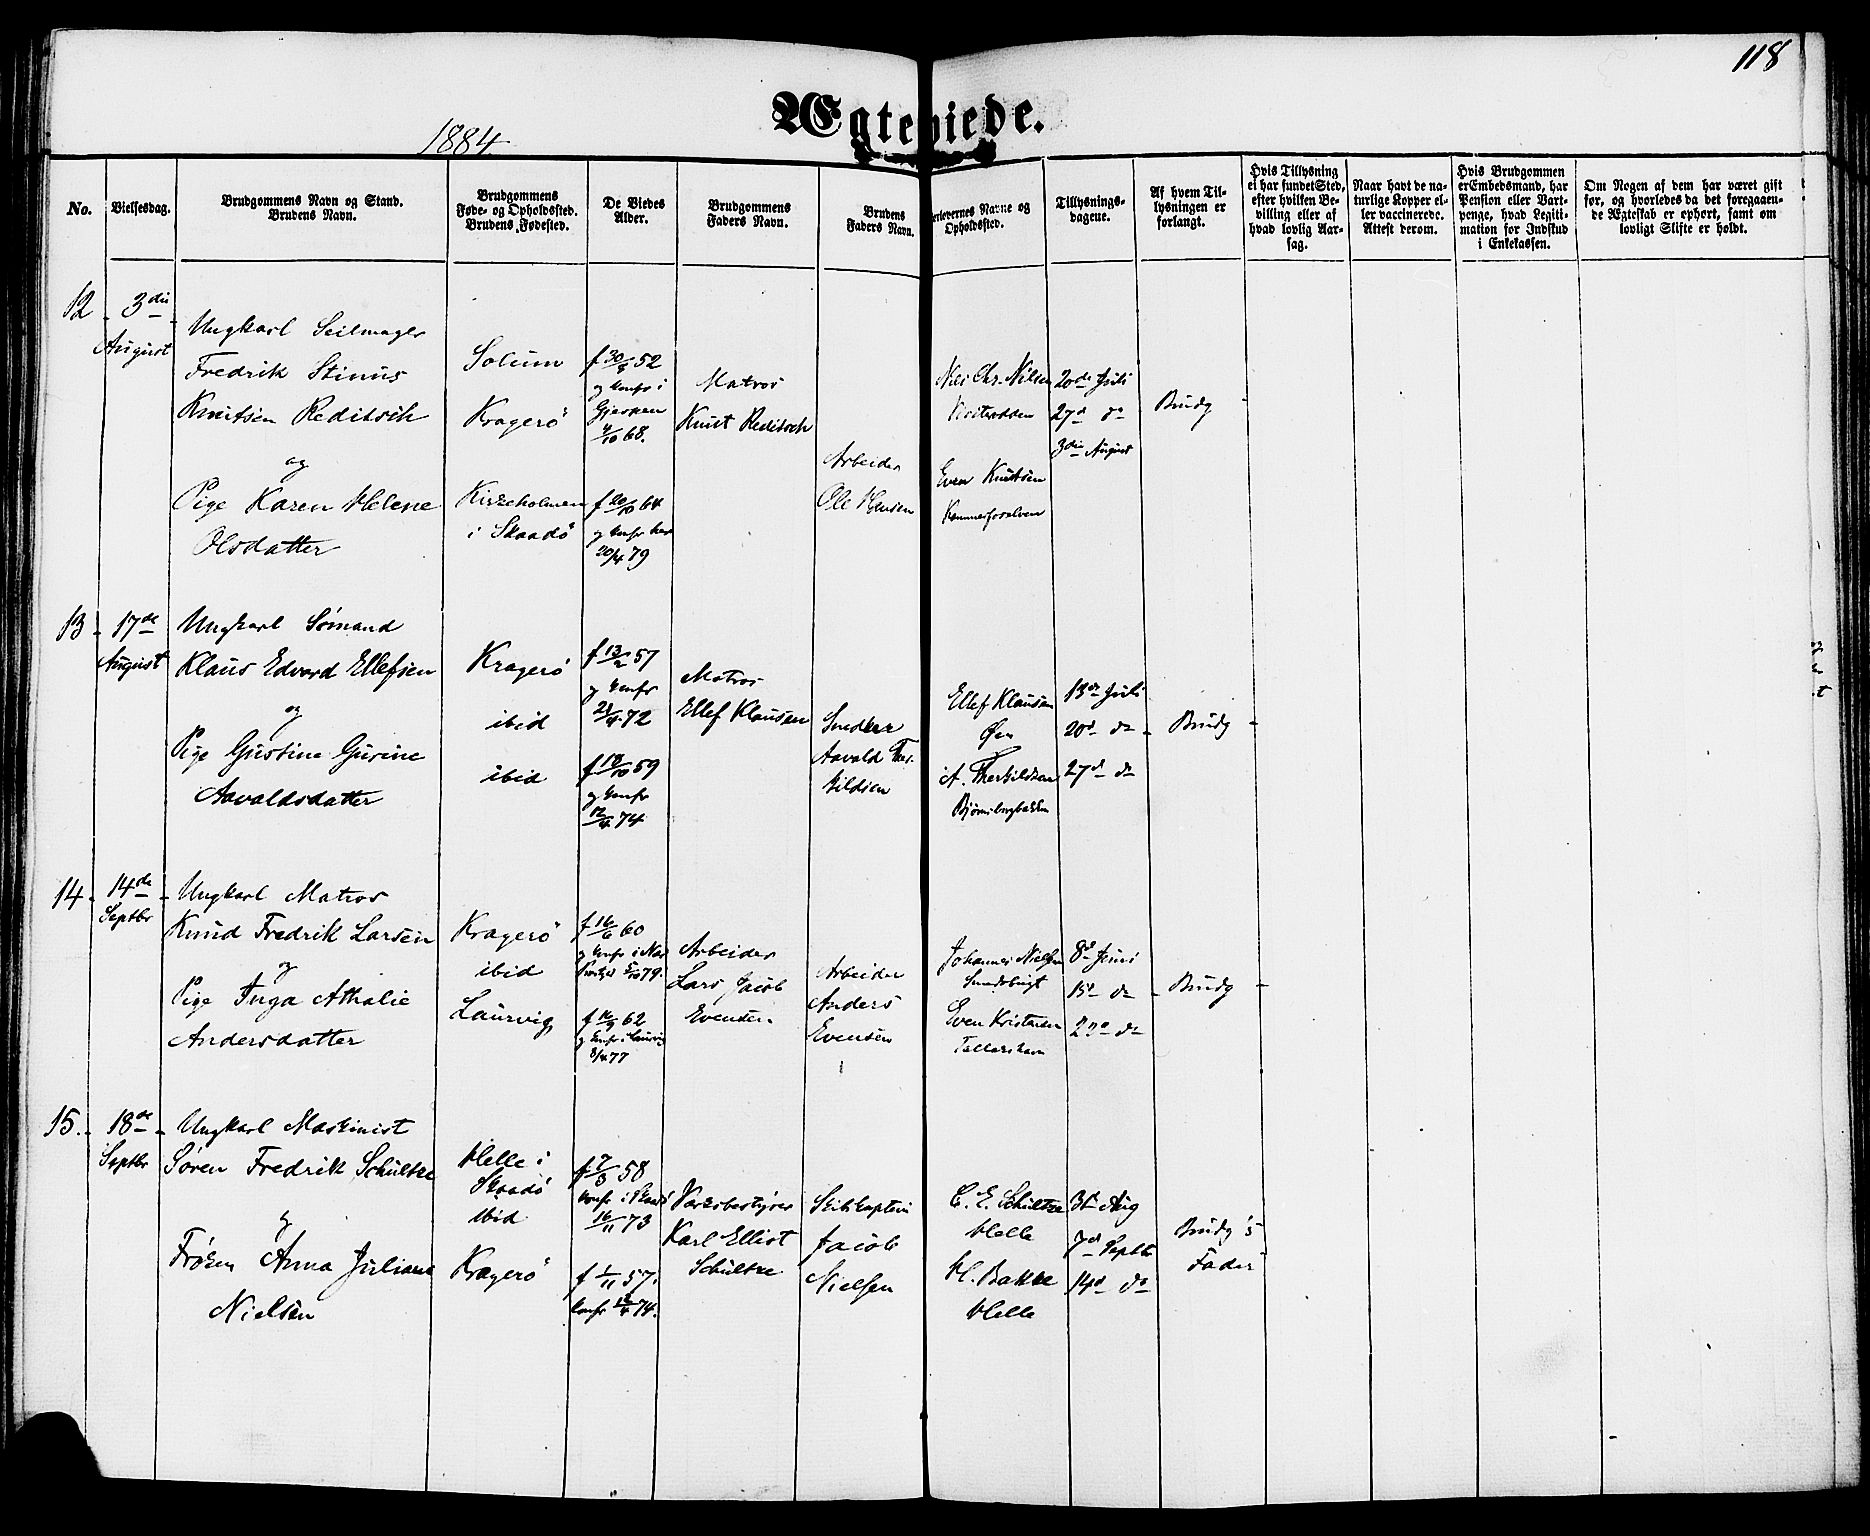 118
Ægteviede.
1884
No.
Vielsesdag.
Brudgommens Navn og Stand.
Brudens Navn.
Brudgommens
Føde- og Opholdssted.
Brudens Fødested.
De Viedes
Alder.
Brudgommens
Faders Navn.
Brudens
Faders Navn.
erlevernes Navne og
Opholdssted.
Tillysnings-
dagene.
Af hvem Til-
lysningen er
forlangt.
Hvis Tillysning
ei har fundet Sted,
efter hvilken Be-
villing eller af
hvad lovlig Aar-
sag.
Naar havt de na-
turlige Kopper el-
ler vaccinerede.
Attest derom.
Hvis Brudgommen
er Embedsmand, har
Pension eller Vart-
penge, hvad Legiti-
mation for Indskud
i Enkekassen.
Om Nogen af dem har været gift
før, og hvorledes da det foregaaen-
de Ægteskab er ophørt, samt om
lovligt Skifte er holdt.
12
3die
August
Ungkarl Seilmager
Fredrik Stinus
Knutsen Reditsch
og
Pige Karen Helene
Olsdatter
Solum
Kragerö
Kirkeholmen
i Skaadö
f 30/5 52
og konfr i
Gjerpen
4/10 68.
f 20/10 64
og konfr her
20/4 79
Matros
Knut Reditsch
Arbeider
Ole Hansen
Niels Chr. Nilsen
Even Knutsen
20de Juli
27d do
3die August
Brudg
13
17de
August
Ungkarl Sømand
Klaus Edvard Ellefsen
og
Pige Gustine Gurine
Aavaldsdatter
Kragerö
ibid
ibid
f 13/2 57
og konfr
21/4 72
f 18/10 59
og konfr
12/4 74
Matros
Ellef Klausen
Snedker
Aavald Ther-
kildsen
Ellef Klausen
Øen
A. Therkildsen
Bjørnsbergbakken
13de Juli
20d do
27d do
Brudg
14
14de
Septbr
Ungkarl Matros
Knud Fredrik Larsen
og
Pige Inga Athalie
Andersdatter
Kragerö
ibid
Laurvig
f 16/6 60
og konfr i
5/10 79.
f 14/9 62
og konfr i Laurvig
8/4 77
Arbeider
Lars Jacob
Evensen
Arbeider
Anders
Evensen
Johannes Nielsen
Smedsbugt
Even Kristensen
Tallakshavn
8d Juni
15d do
22d do
Brudg
15.
18de
Septbr
Ungkarl Maskinist
Søren Fredrik Schultze
og
Frøken Anna Juliane
Nielsen
Helle i
Skaadö
ibid
Kragerö
f 7/3 58
konfr i Skaadö
16/11 73
f 1/11 57.
konfr 12/4 74.
Værksbestyrer
Karl Elliot
Schultze
Skibskaptein
Jacob
Nielsen
C. E. Schultze
Helle
H. Bakke
Helle
31te Aug
7d Septbr
14d do
Brudg's
Fader